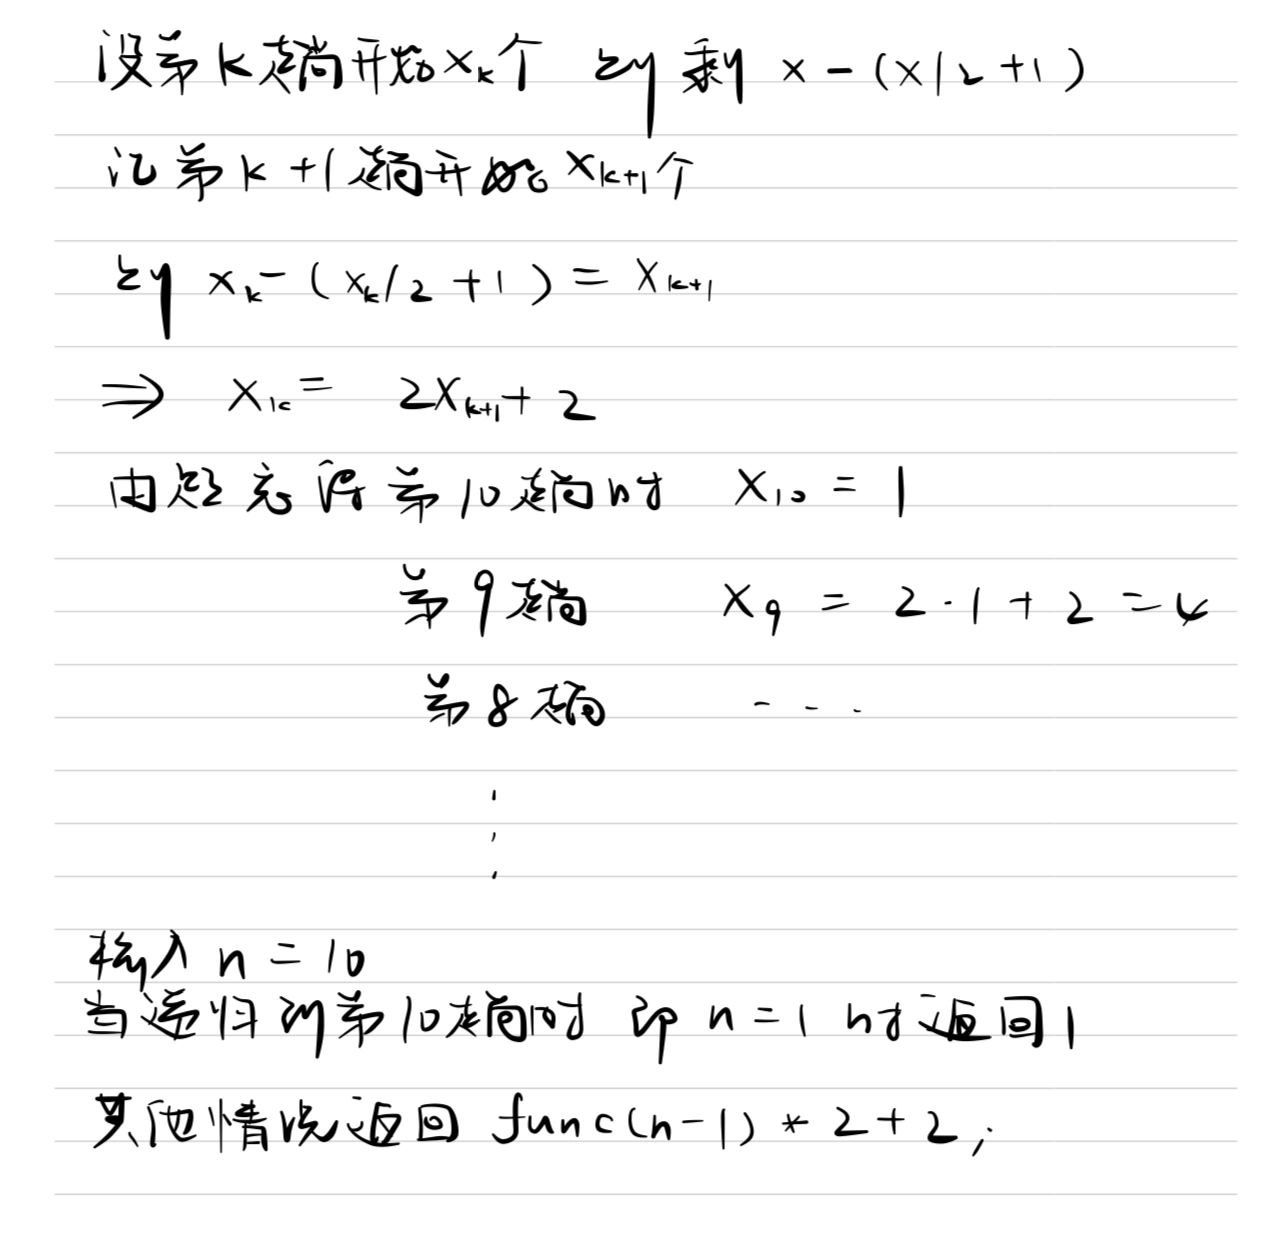 设第k趟开始xₖ个 则剩 x-(x/2+1)
记第k+1趟开始xₖ₊₁个
则 xₖ-(xₖ/2+1)=xₖ₊₁
⇒ xₖ= 2xₖ₊₁+2
由题意得第10趟时 x₁₀=1
第9趟 x₉=2·1+2=4
第8趟 ...
⋮
输入n=10
当递归到第10趟时 即n=1时返回1
其他情况返回 func(n-1)*2+2;